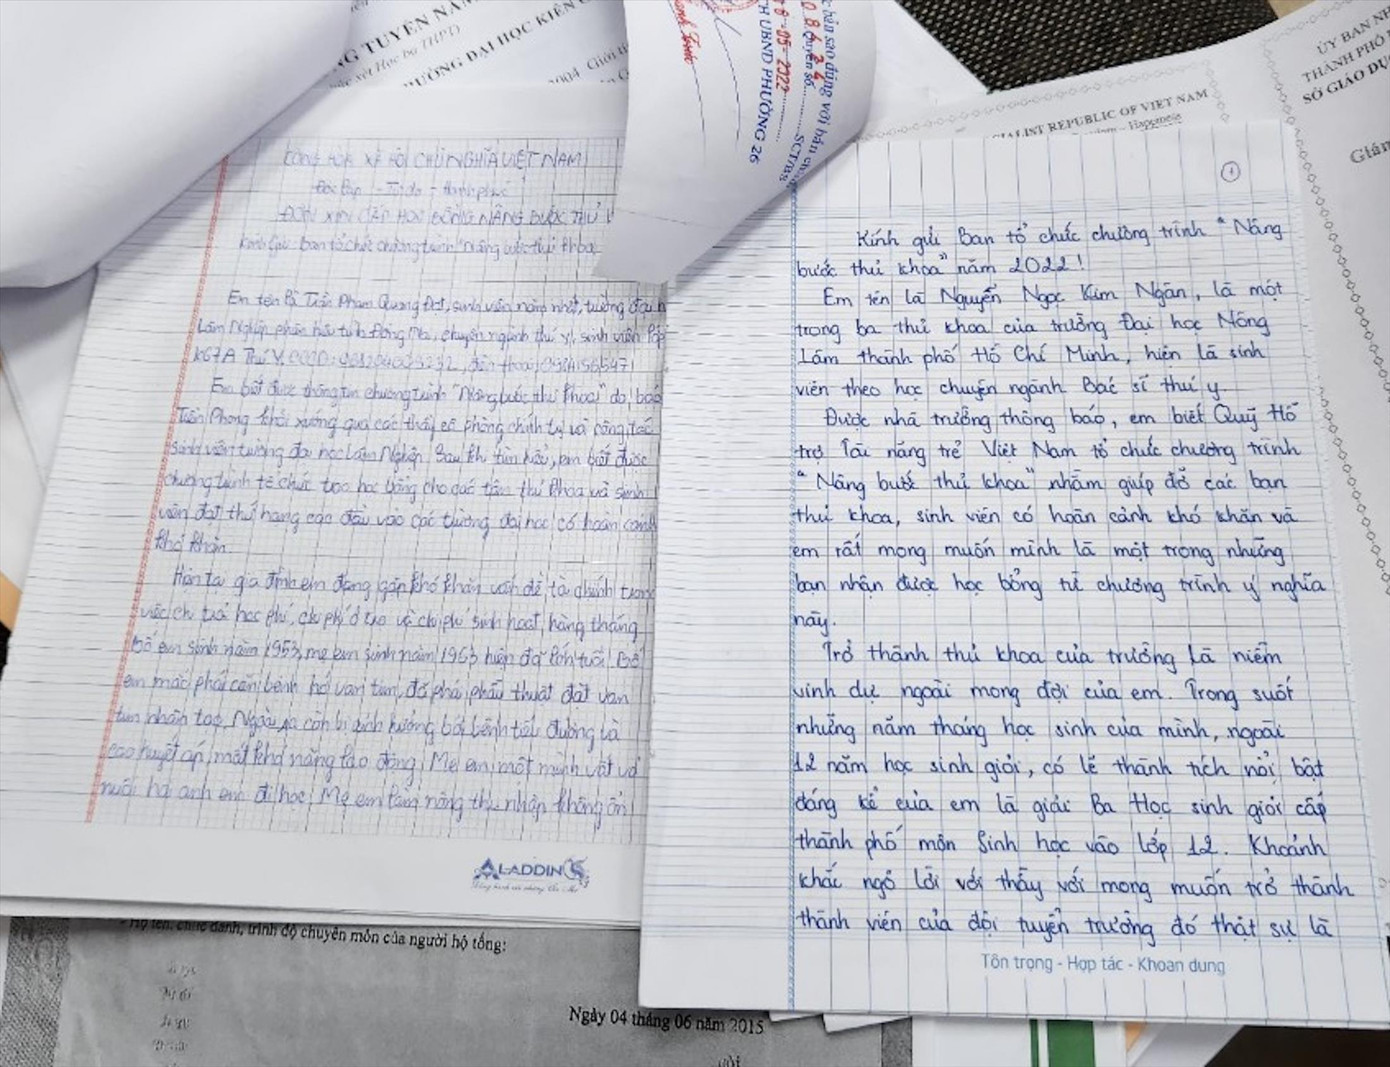 NG TUYỂN NĂ
xét Học bạ THPT)
ƯỜNG ĐẠI HỌC KIÊN G
2004
bản sao đúng với bản
08424
Quyển số
SCT/BS
8-05-2022
UBND PHƯỜNG 26
CIALIST REPUBLIC OF VIET NAM
Happiness
ỦY BAN N
THÀNH PHỐ
SỞ GIÁO DỤ
Giấ
CỘNG HÒA XÃ HỘI CHỦ NGHĨA VIỆT NAM
Độc lập - Tự do - Hạnh phúc
ĐƠN XIN CẤP HỌC BỔNG NÂNG BƯỚC THỦ
Kính gửi: ban tổ chức chương trình "Nâng bước thủ khoa
Em tên là Trần Phạm Quang Đạt, sinh viên năm nhất, trường đại h
Lâm Nghiệp phân hiệu tỉnh Đồng Nai, chuyên ngành thú y, sinh viên lớp
K67A Thú Y, CCCD: điện thoại
Em biết được thông tin chương trình "Nâng bước thủ khoa" do báo
Tiền Phong khởi xướng qua các thầy cô phòng chính trị và công tác
sinh viên trường đại học Lâm Nghiệp. Sau khi tìm hiểu, em biết được
chương trình tổ chức trao học bổng cho các tân thủ khoa và sinh
viên đạt thứ hạng cao đầu vào các trường đại học có hoàn cảnh
khó khăn.
Hiện tại gia đình em đang gặp khó khăn vấn đề tài chính trong
việc chi trả học phí, chi phí ở trọ và chi phí sinh hoạt hàng tháng
Bố em sinh năm 1953, mẹ em sinh năm 1963 hiện đã lớn tuổi. Bố
em mắc phải căn bệnh hở van tim, đã phải phẫu thuật đặt van
tim nhân tạo. Ngoài ra còn bị ảnh hưởng bởi bệnh tiểu đường và
cao huyết áp, mất khả năng lao động. Mẹ em một mình vất vả
nuôi hai anh em đi học. Mẹ em làm nông thu nhập không ổn
ALADDIN
①
Kính gửi Ban tổ chức chương trình "Nâng
bước thủ khoa" năm 2022!
Em tên là Nguyễn Ngọc Kim Ngân, là một
trong ba thủ khoa của trường Đại học Nông
Lâm thành phố Hồ Chí Minh, hiện là sinh
viên theo học chuyên ngành Bác sĩ thú y.
Được nhà trường thông báo, em biết Quỹ Hỗ
trợ Tài năng trẻ Việt Nam tổ chức chương trình
"Nâng bước thủ khoa" nhằm giúp đỡ các bạn
thủ khoa, sinh viên có hoàn cảnh khó khăn và
em rất mong muốn mình là một trong những
bạn nhận được học bổng từ chương trình ý nghĩa
này.
Trở thành thủ khoa của trường là niềm
vinh dự ngoài mong đợi của em. Trong suốt
những năm tháng học sinh của mình, ngoài
12 năm học sinh giỏi, có lẽ thành tích nổi bật
đáng kể của em là giải Ba Học sinh giỏi cấp
thành phố môn Sinh học vào lớp 12. Khoảnh
khắc ngỏ lời với thầy với mong muốn trở thành
thành viên của đội tuyển trường đó thật sự là
Tôn trọng - Hợp tác - Khoan dung
- Họ tên, chức danh, trình độ chuyên môn của người hộ tống:
Ngày 04 tháng 06 năm 2015